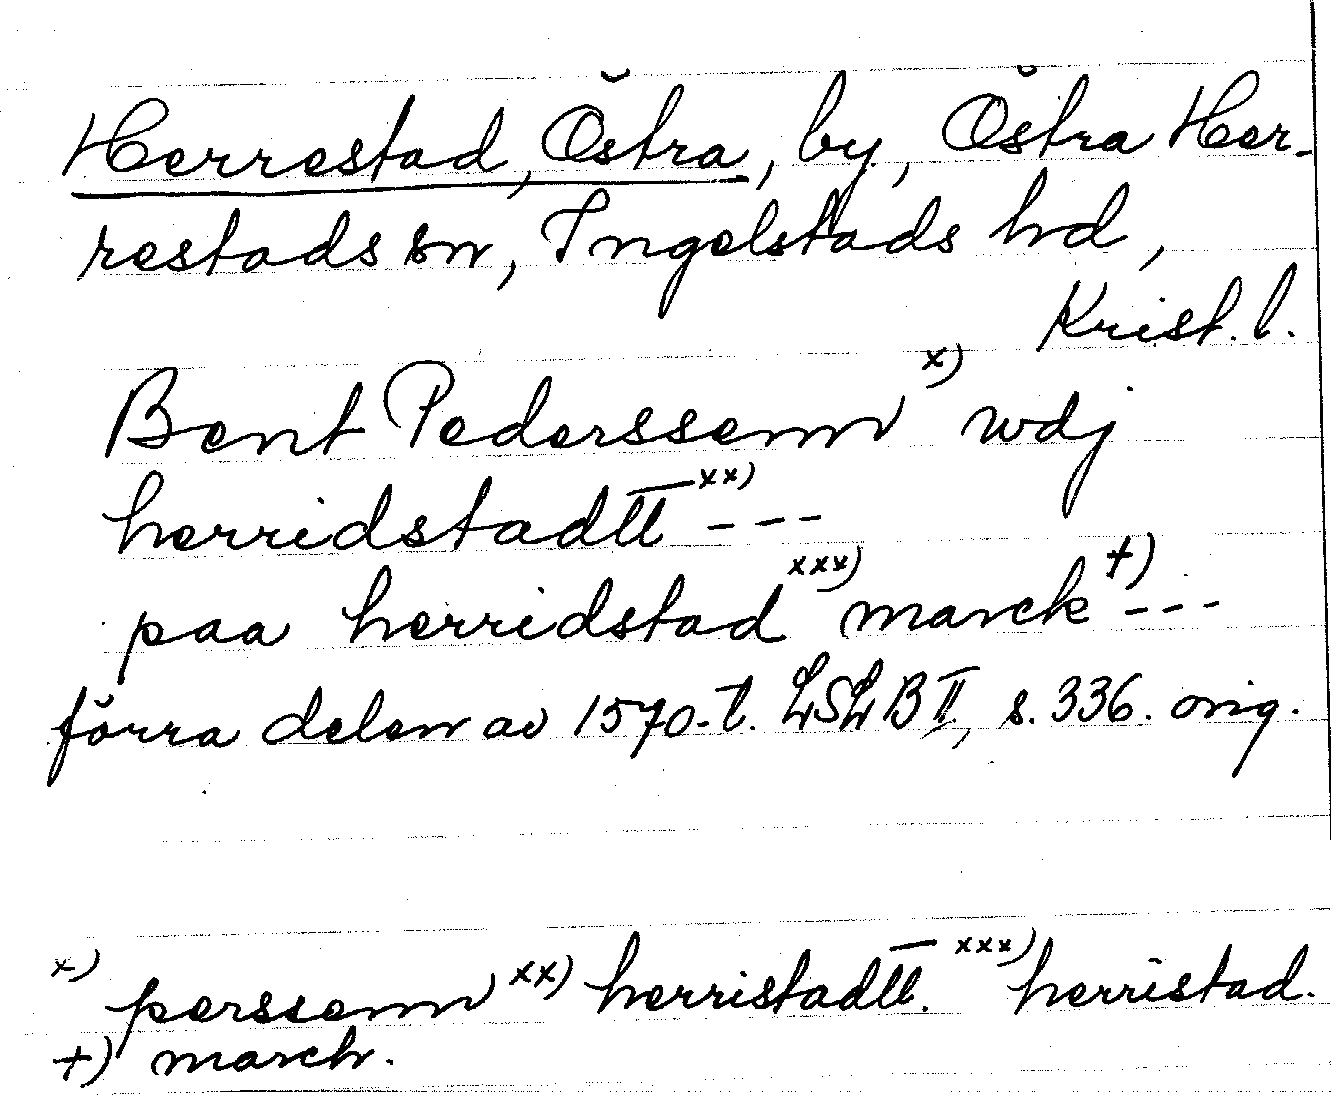 Herrestad, Östra, by, Östra Her-
restads sn, Ingelstads hd,
Krist. l.
Bent Pederssenn x) wdj
herridstadtt xx) ---
paa herridstad xxx) marck +) ---
förra delen av 1570-t. LSLB II, s. 336. orig.
x) perssenn xx) herristadtt. xxx) herristad.
+) march.